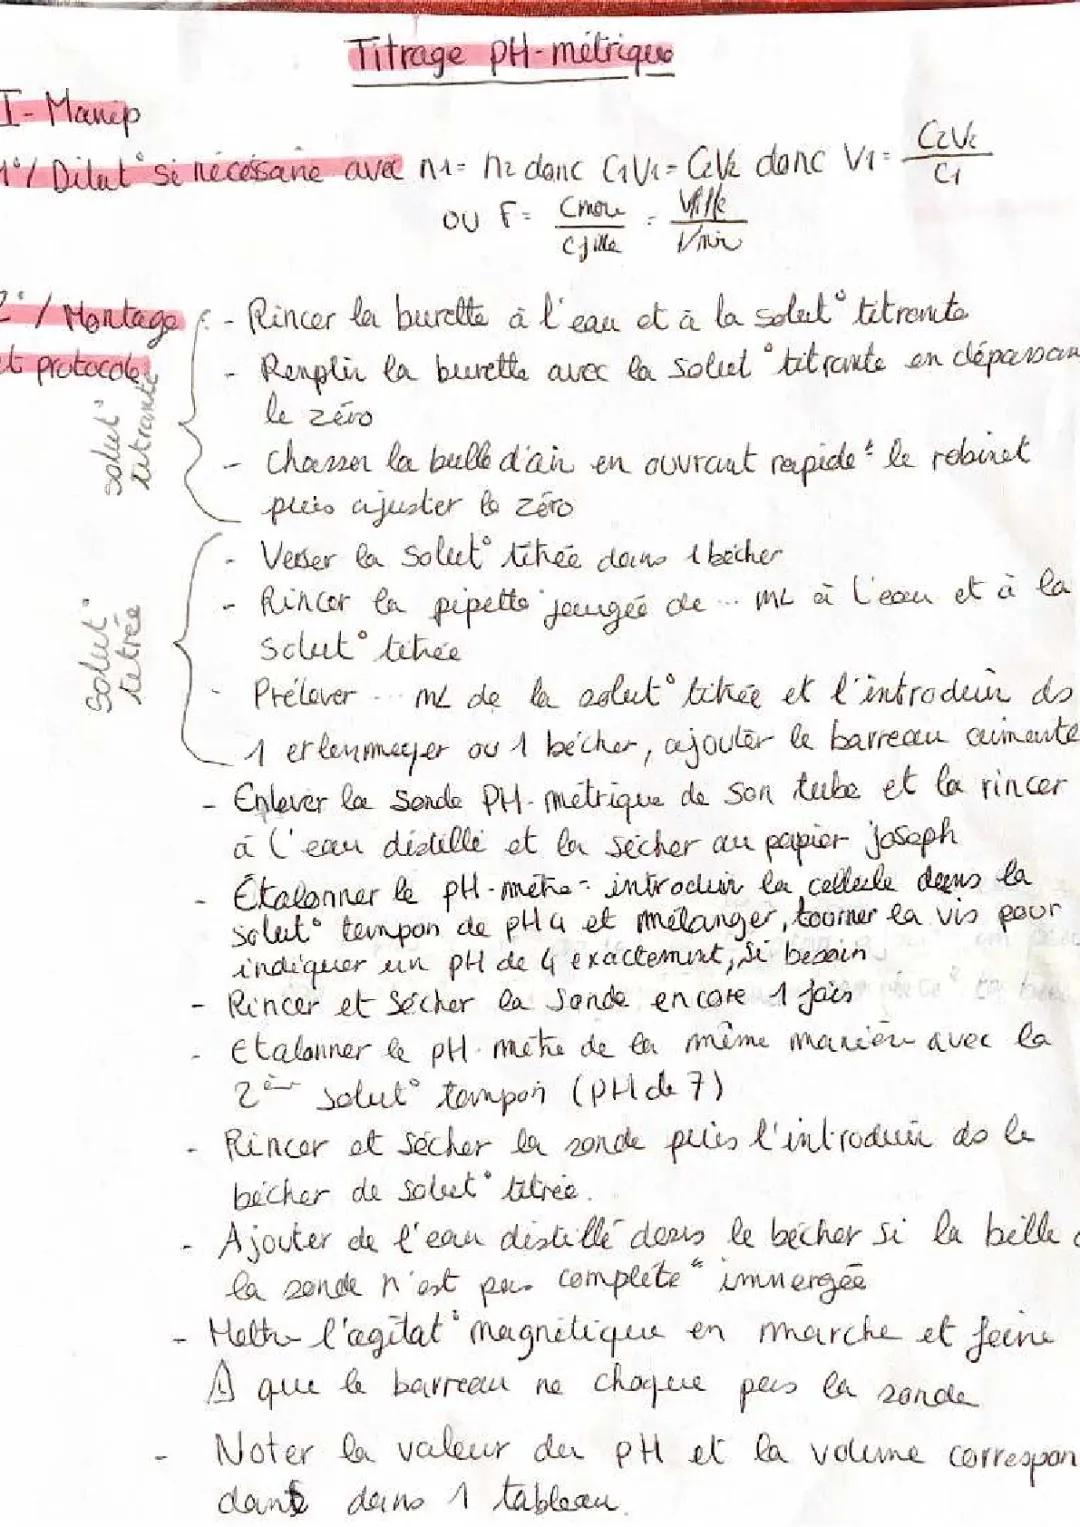 Titrage pH-métrique
I- Manip
1°/ Dilut° si nécéssaire avec n1 = n2 donc C1V1 = C2V2 donc V1 = C2V2 / C1
ou F = Cmère / Cfille = Vfille / Vmère
2°/ Montage et protocole
solut° titrante
- Rincer la burette à l'eau et à la solut° titrante
- Remplir la burette avec la solut° titrante en dépassan
le zéro
- Chasser la bulle d'air en ouvrant rapide^t le robinet
puis ajuster le zéro
solut° titrée
- Verser la solut° titrée dans 1 bécher
- Rincer la pipette jaugée de ... mL à l'eau et à la
solut° titrée
- Prélever ... mL de la solut° titrée et l'introduire ds
1 erlenmeyer ou 1 bécher, ajouter le barreau aimanté
- Enlever la sonde pH-métrique de son tube et la rincer
à l'eau distillé et la sécher au papier joseph
- Étalonner le pH-mètre - introduire la cellule dans la
solut° tampon de pH 4 et mélanger, tourner la vis pour
indiquer un pH de 4 exactement, si besoin
- Rincer et sécher la sonde encore 1 fois
- Etalonner le pH-mètre de la même manière avec la
2ème solut° tampon (pH de 7)
- Rincer et sécher la sonde puis l'introduire ds le
bécher de solut° titrée.
- Ajouter de l'eau distillé dans le bécher si la bille
la sonde n'est pas complète^t immergée
- Mettre l'agitat° magnétique en marche et faire
⚠ que le barreau ne choque pas la sonde
- Noter la valeur du pH et la volume correspon
dant dans 1 tableau.